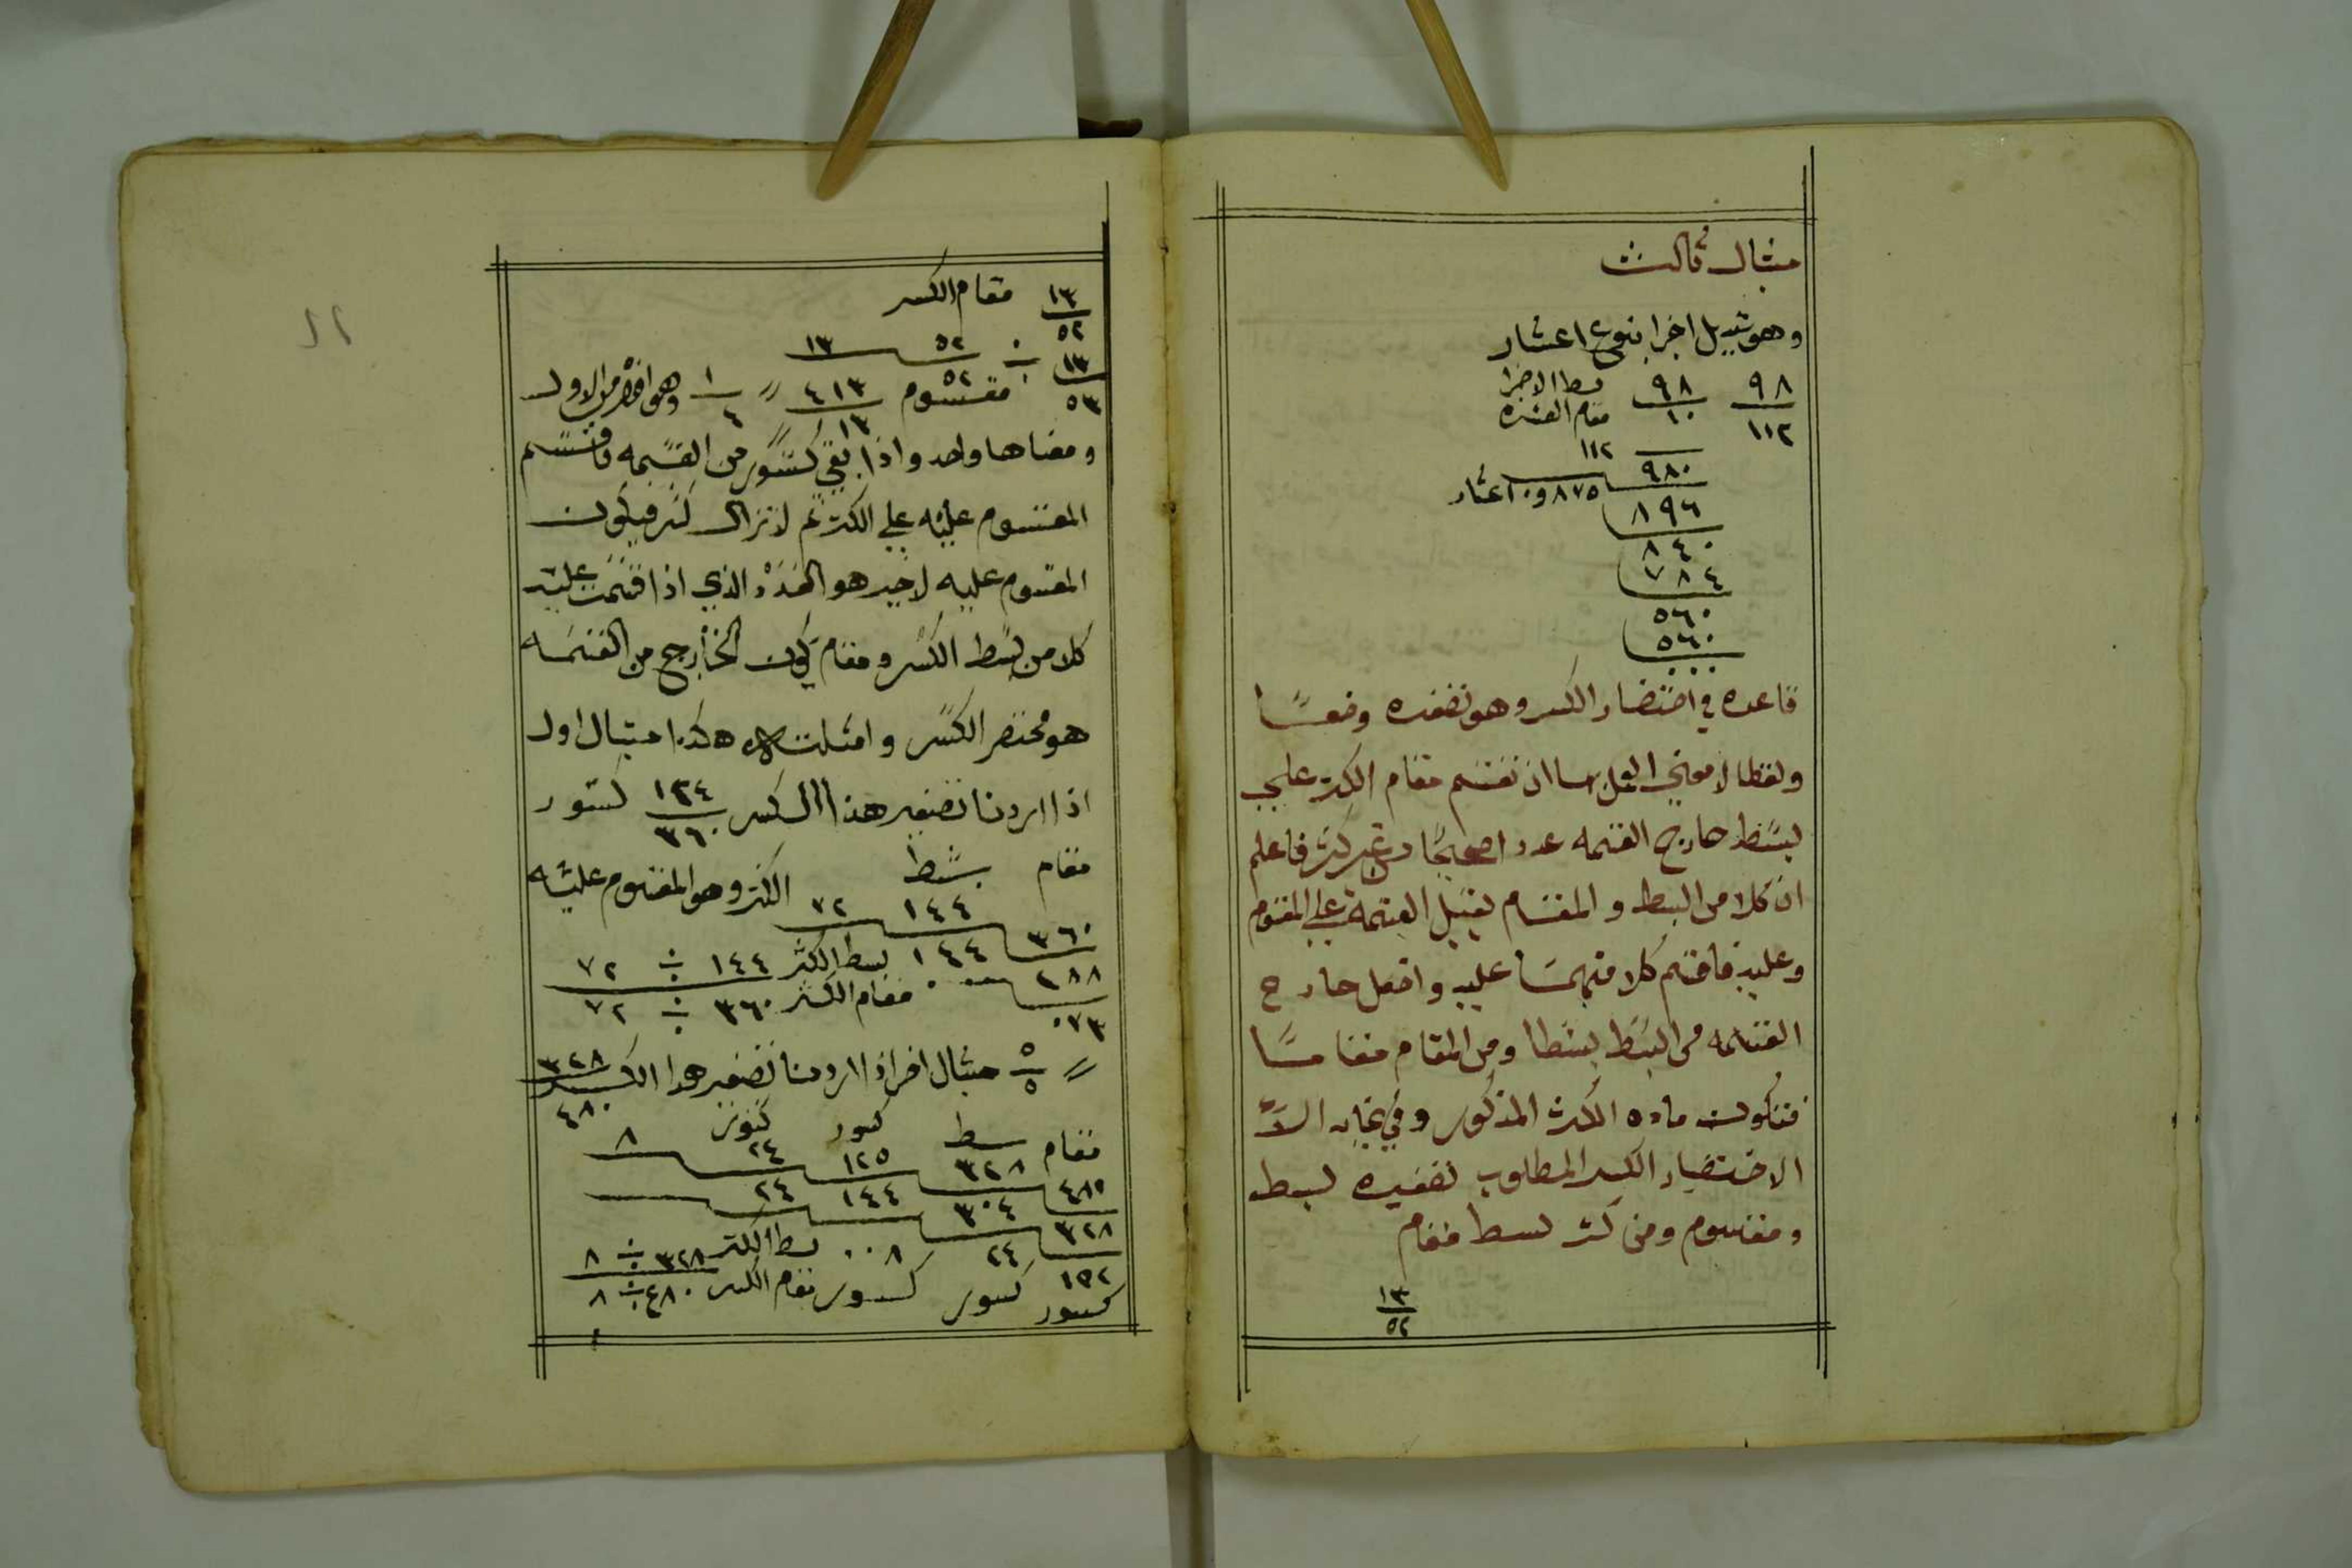 مثال ثالث
وهو تبديل اجزا بنوع اعشار
٩٨ ٩٨ بسط الاجزا
١١٢ ١٠ مقام العشره
١١٢
٩٨٠ ٨٧٥و٠ اعشار
٨٩٦
٨٤٠
٧٨٤
٥٦٠
٥٦٠
٠٠٠
قاعده في اختصار الكسر وهو تصغيره وضعًا
ولفظا لا معني ان تقسم مقام الكسر علي
بسط خارج القسمه عددا صحيحًا من غير كسر فاعلم
ان كلا من البسط والمقام يقبل القسمة علي المقسوم
وعليه فاقسم كلا منهما عليه واجعل خارج
القسمه من البسط بسطا ومن المقام مقاما
فتكون ماده الكسر المذكور وفي غايه الا
الاختصار الكسر المطلوب تصغيره بسط
ومقسوم ومن كسر بسط مقام
١٣
٥٢
١٣ مقام الكسر
٥٢
١٣ ÷ ٥٢ ١٣
٥٣ مقسوم ٥٢ ٤١٣ // ١ وهو اخصر من الاول
١٣ ٤
ومعناها واحد واذا بقي كسور من القسمه فاقسم
المقسوم عليه علي الكسر ثم لا تزال كسر فيكون
المقسوم عليه لاخير هو العدد الذي اذا قسمت عليه
كلا من بسط الكسر ومقام يكون الخارج من القسمه
هو مختصر الكسر وامثلت هكذا مثال اول
اذا اردنا تصغير هذا الكسر ١٤٤ كسور
٣٦٠
مقام بسط
٣٦٠ ١٤٤ ٧٢ الكسر وهو المقسوم عليه
٢٨٨ ١٤٤ بسط الكسر ١٤٤ ÷ ٧٢
٠٧٢ ٠٠٠ مقام الكسر ٣٦٠ ÷ ٧٢
// ٥ مثال اخر اذا اردنا تصغير هذا الكسر ٣٢٨
٥ ٤٨٠
مقام بسط كسور كسور
٤٨٠ ٣٢٨ ١٢٥ ٢٤ ٨
٣٢٨ ٣٠٤ ١٤٤ ٢٤
١٥٢ ٢٤ ٠٠٨ بسط الكسر ٣٢٨ ÷ ٨
كسور كسور كسور مقام الكسر ٤٨٠ ÷ ٨